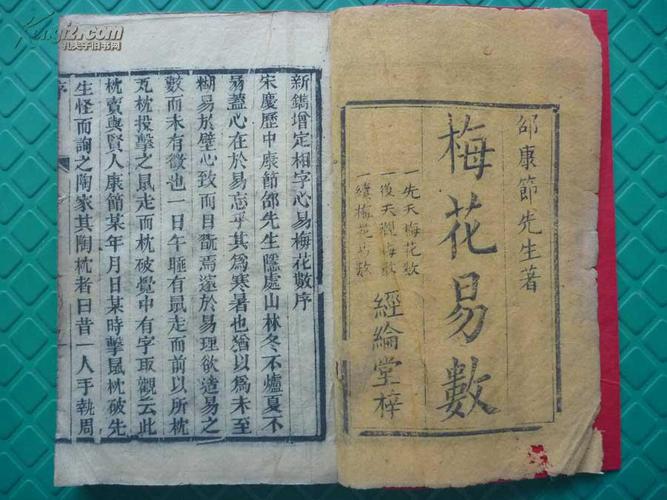 邵康節先生著
梅花易數
一先天梅花數
一後天觀梅數
一續梅花易數
經綸堂梓
新鐫增定相字心易梅花數序
宋慶歷中康節邵先生隱處山林冬不爐夏不
易蓋心在於易忘乎其為寒暑也猶以為未至
糊易於壁心致而目翫焉邃於易理欲造易之
數而未有徵也一日午睡有鼠走而前以所枕
瓦枕投擊之鼠走而枕破覺中有字取觀云此
枕賣與賢人康節某年月日某時擊鼠枕破先
生怪而詢之陶家其陶枕者曰昔一人手執周
序
kongfz.com
孔夫子旧书网